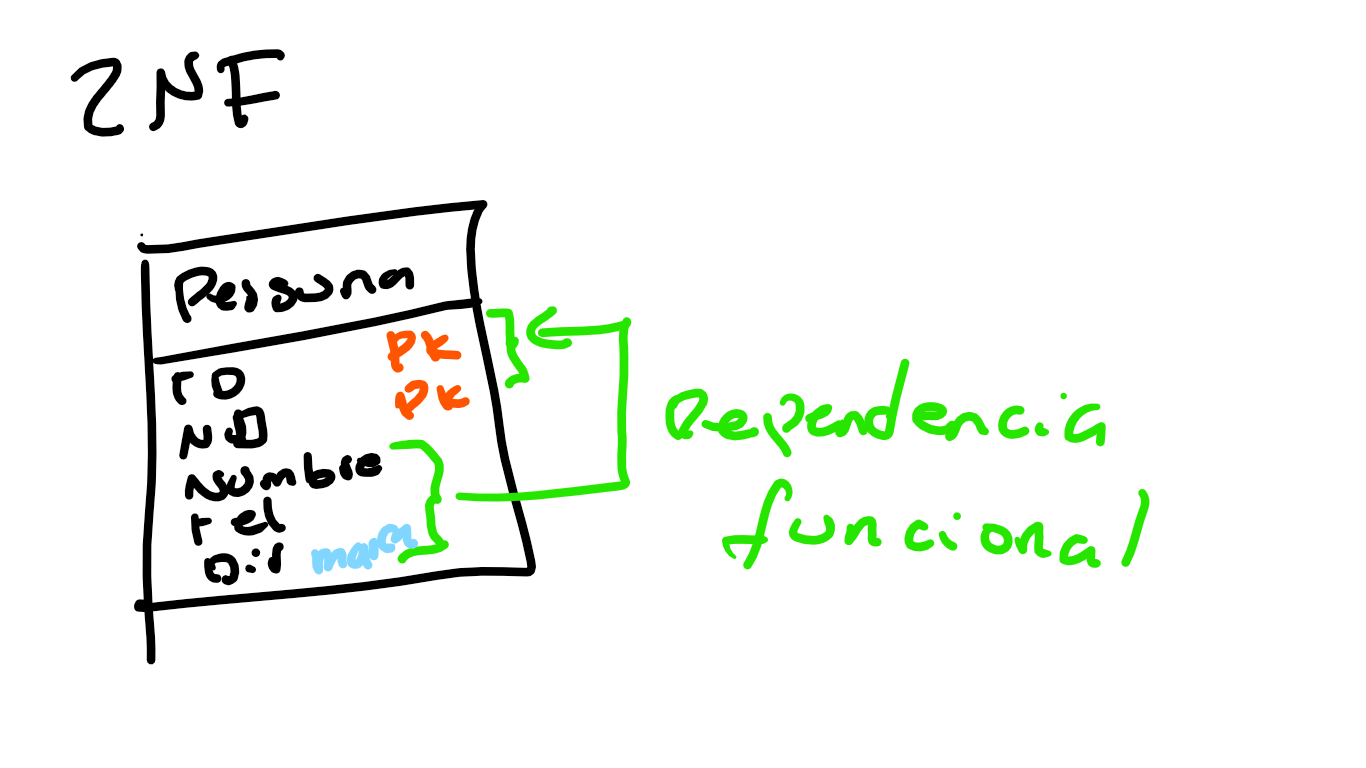 2NF
Persona
TD PK
ND PK
Nombre
Tel
Dir
Dependencia
funcional